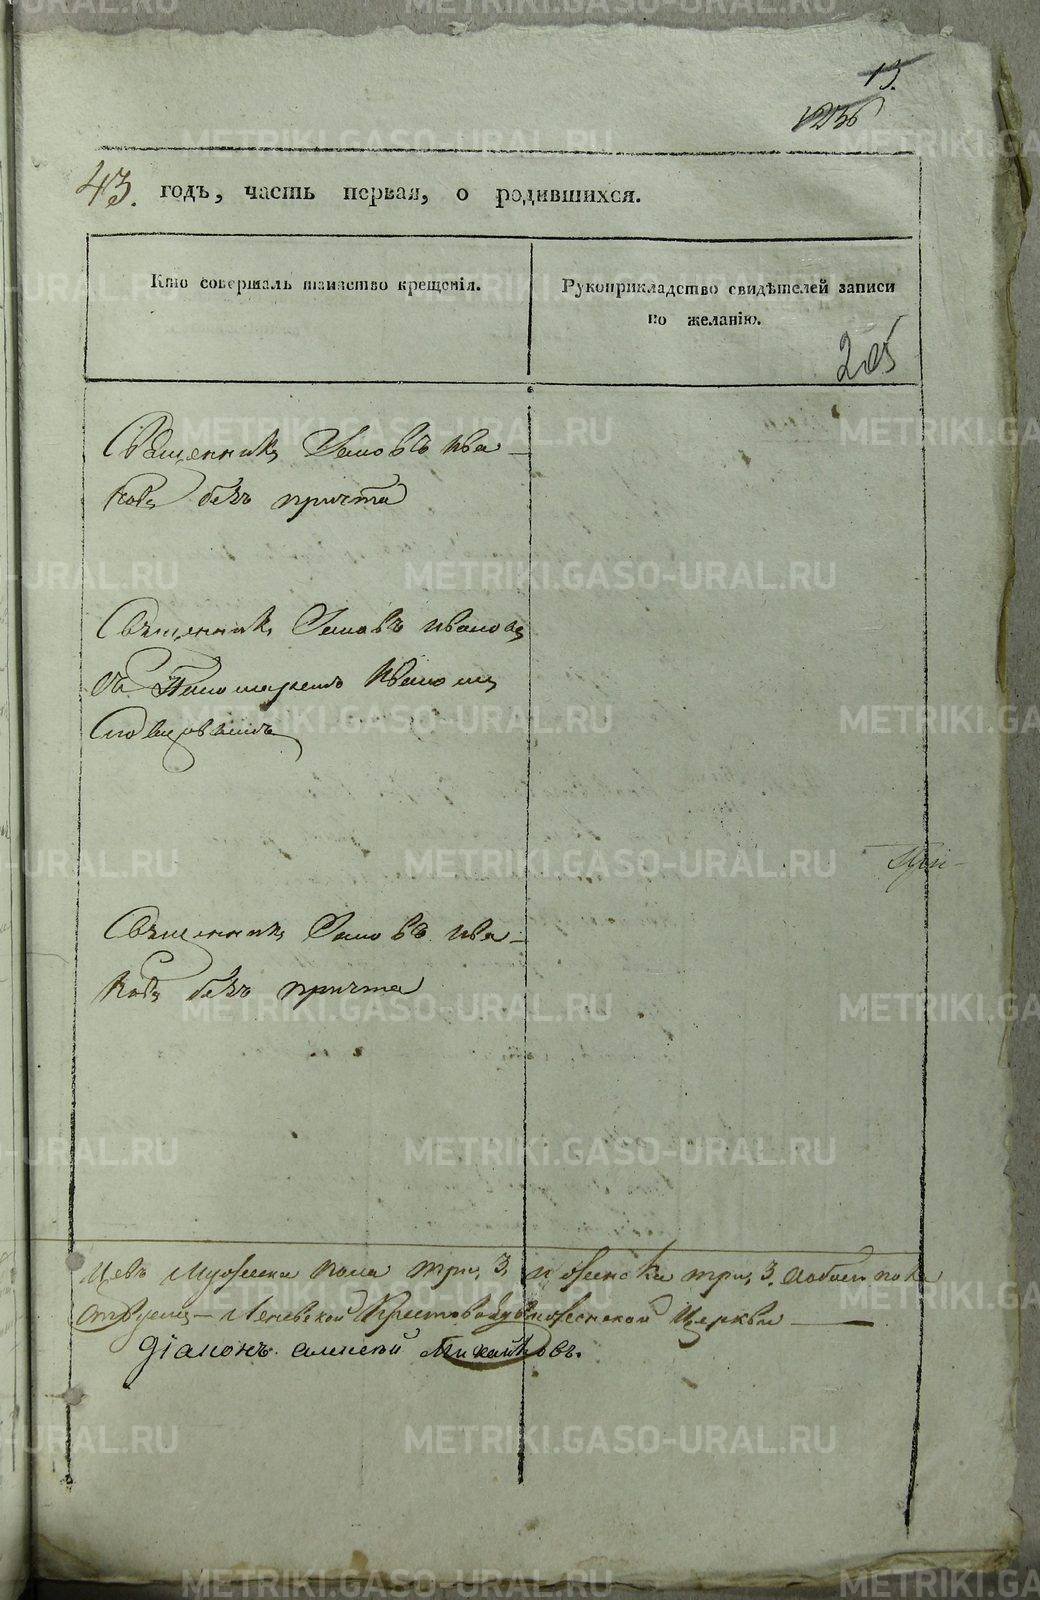 13.
1236
43. годъ, часть первая, о родившихся.
Кто совершалъ таинство крещенія.
Рукоприкладство свидѣтелей записи
по желанію.
205
Священникъ Іаковъ Ива-
новъ безъ причта
Священникъ Іаковъ Ивановъ
съ Пономаремъ
Священникъ Іаковъ Ива-
новъ безъ причта
При-
мужеска пола три, 3, и женска три, 3. обоего пола
Невской Крестовоздвиженской Церкви
Діаконъ Алексей Михайловъ.
METRIKI.GASO-URAL.RU